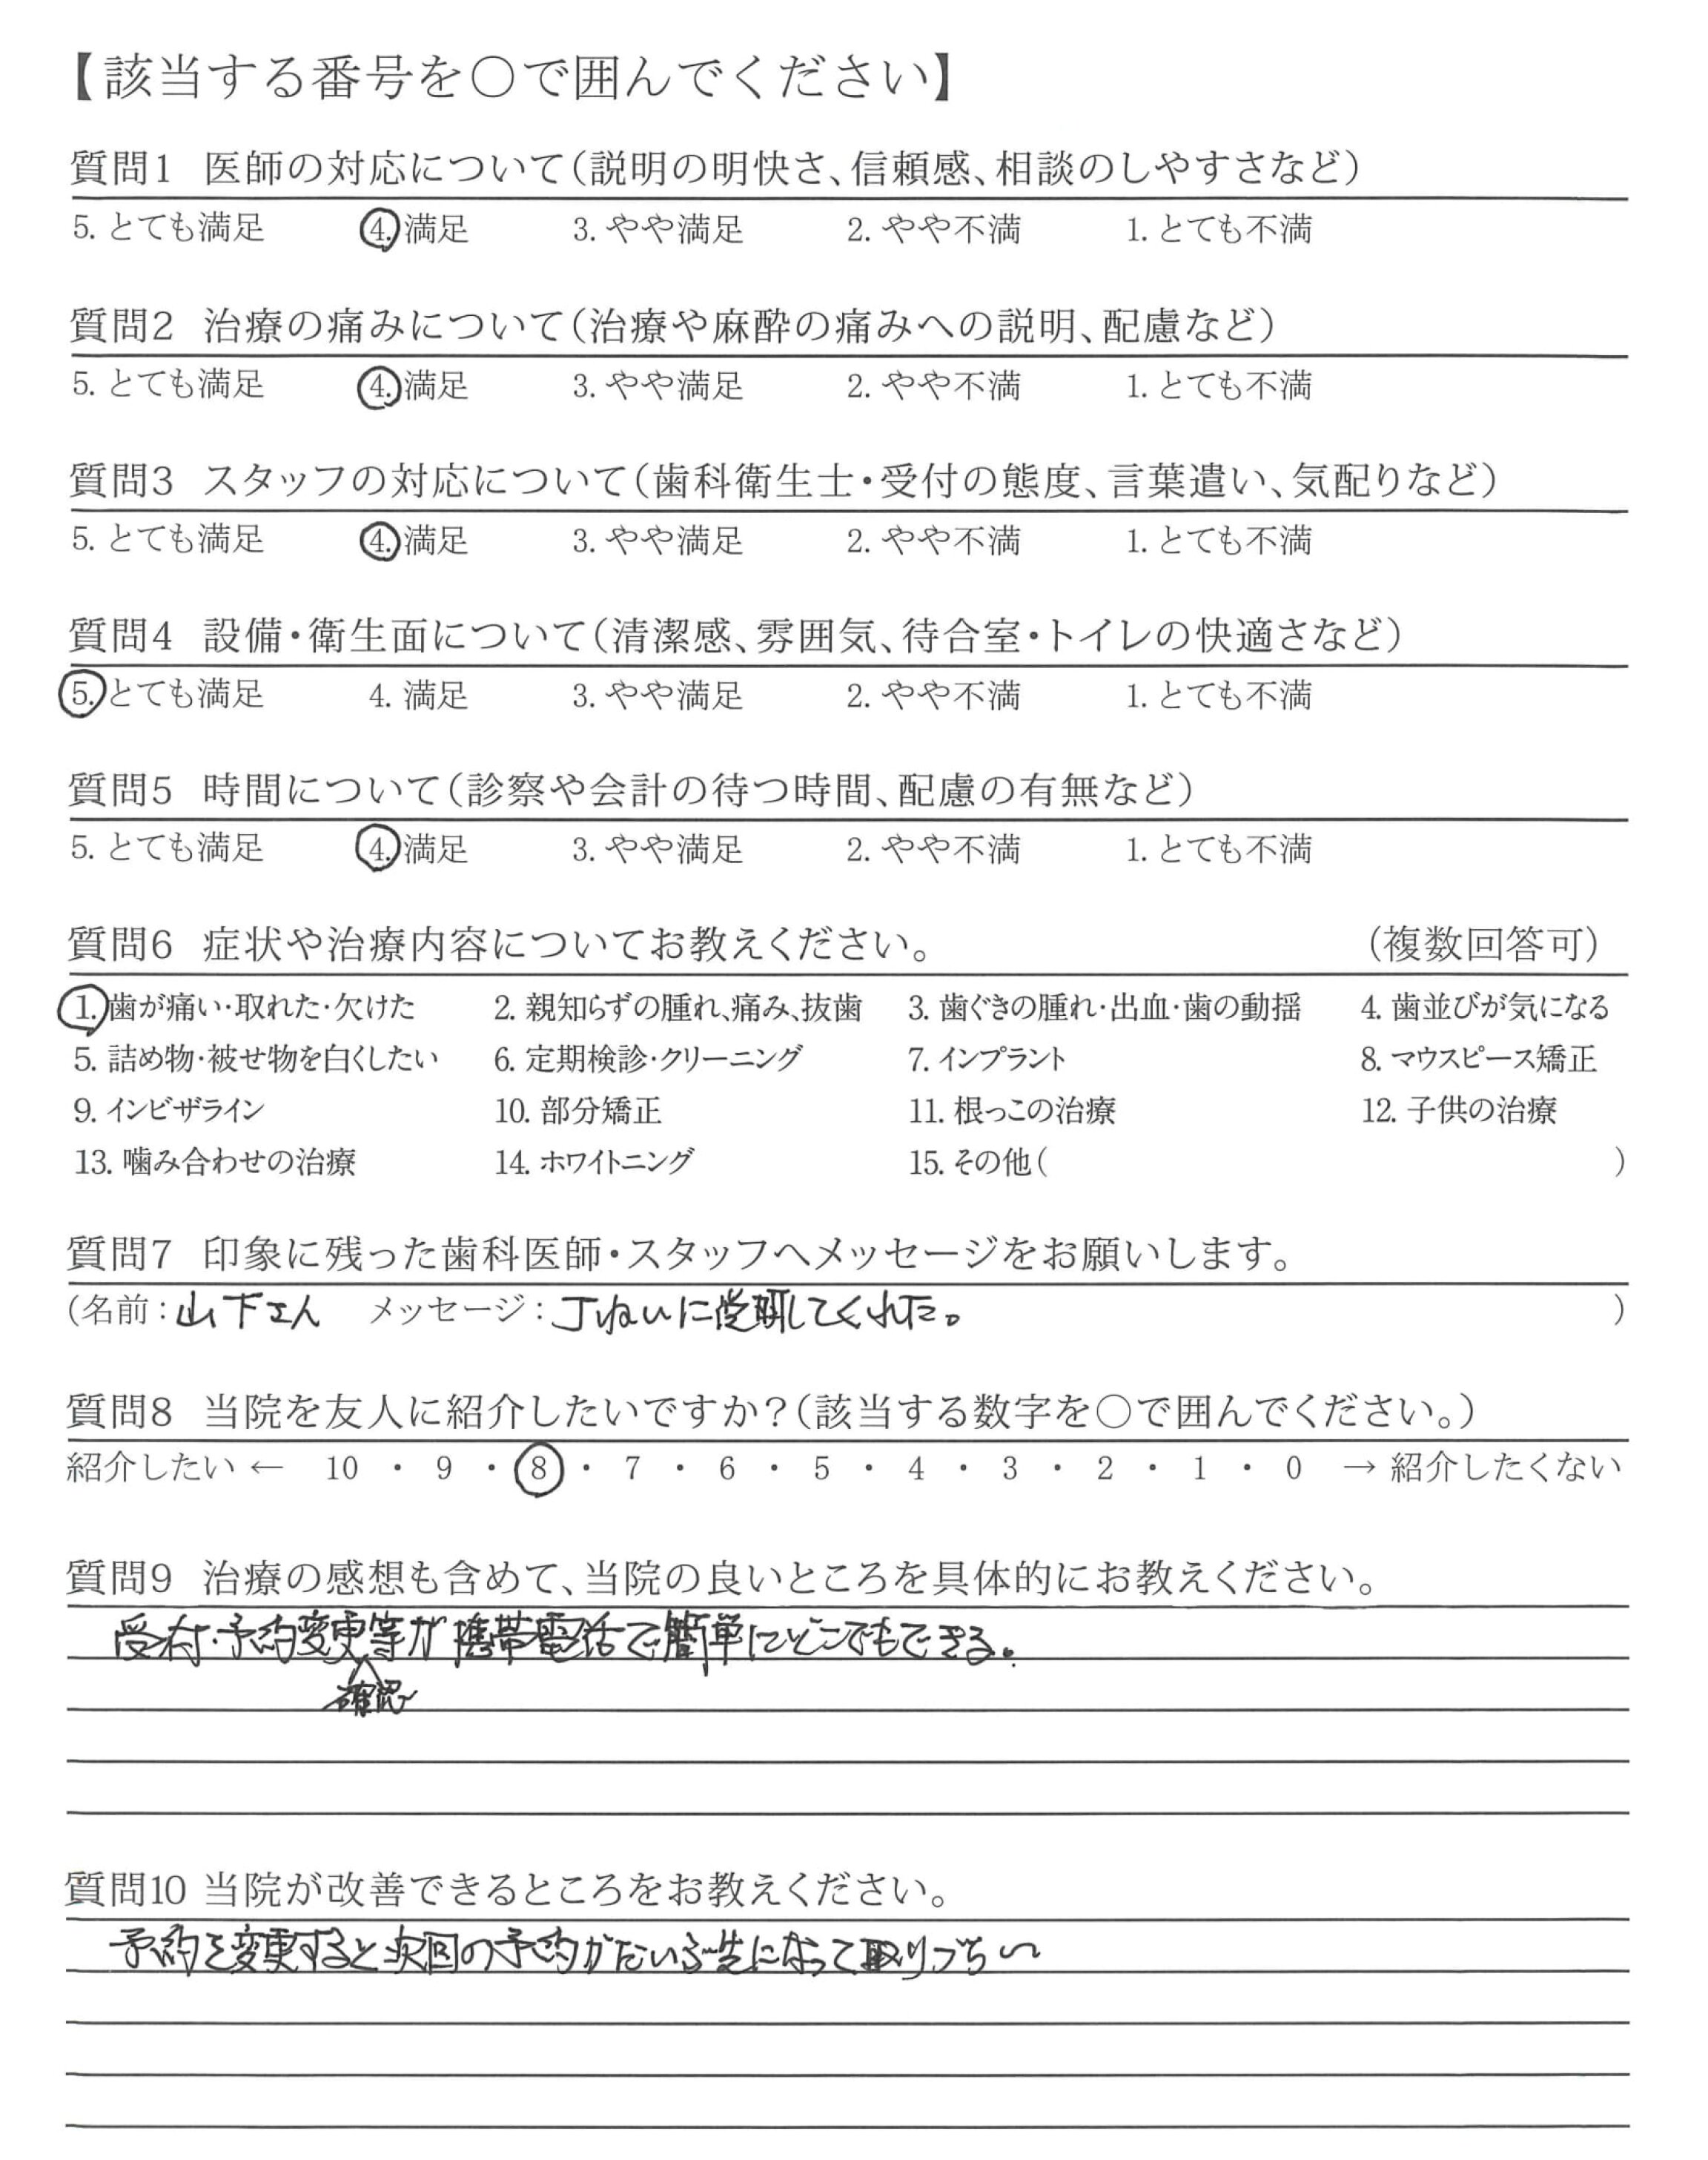 【該当する番号を〇で囲んでください】
質問1 医師の対応について（説明の明快さ、信頼感、相談のしやすさなど）
5. とても満足 4. 満足 3. やや満足 2. やや不満 1. とても不満
質問2 治療の痛みについて（治療や麻酔の痛みへの説明、配慮など）
5. とても満足 4. 満足 3. やや満足 2. やや不満 1. とても不満
質問3 スタッフの対応について（歯科衛生士・受付の態度、言葉遣い、気配りなど）
5. とても満足 4. 満足 3. やや満足 2. やや不満 1. とても不満
質問4 設備・衛生面について（清潔感、雰囲気、待合室・トイレの快適さなど）
5. とても満足 4. 満足 3. やや満足 2. やや不満 1. とても不満
質問5 時間について（診察や会計の待つ時間、配慮の有無など）
5. とても満足 4. 満足 3. やや満足 2. やや不満 1. とても不満
質問6 症状や治療内容についてお教えください。 （複数回答可）
1. 歯が痛い・取れた・欠けた 2. 親知らずの腫れ、痛み、抜歯 3. 歯ぐきの腫れ・出血・歯の動揺 4. 歯並びが気になる
5. 詰め物・被せ物を白くしたい 6. 定期検診・クリーニング 7. インプラント 8. マウスピース矯正
9. インビザライン 10. 部分矯正 11. 根っこの治療 12. 子供の治療
13. 噛み合わせの治療 14. ホワイトニング 15. その他（ ）
質問7 印象に残った歯科医師・スタッフへメッセージをお願いします。
（名前：山下さん メッセージ：丁ねいに説明してくれた。 ）
質問8 当院を友人に紹介したいですか？（該当する数字を〇で囲んでください。）
紹介したい ← 10 ・ 9 ・ 8 ・ 7 ・ 6 ・ 5 ・ 4 ・ 3 ・ 2 ・ 1 ・ 0 → 紹介したくない
質問9 治療の感想も含めて、当院の良いところを具体的にお教えください。
受付・予約変更等が携帯電話で簡単にどこでもできる。
確認
質問10 当院が改善できるところをお教えください。
予約を変更すると次回の予約がだいぶ先になって取りづらい